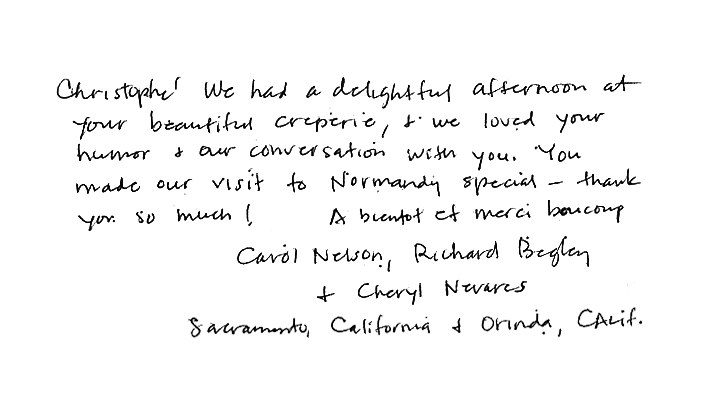 Christophe! We had a delightful afternoon at
your beautiful creperie, & we loved your
humor & our conversation with you. You
made our visit to Normandy special – thank
you so much! A bientot et merci boucoup
Carol Nelson, Richard Begley
& Cheryl Nevares
Sacramento, California & Orinda, CAlif.